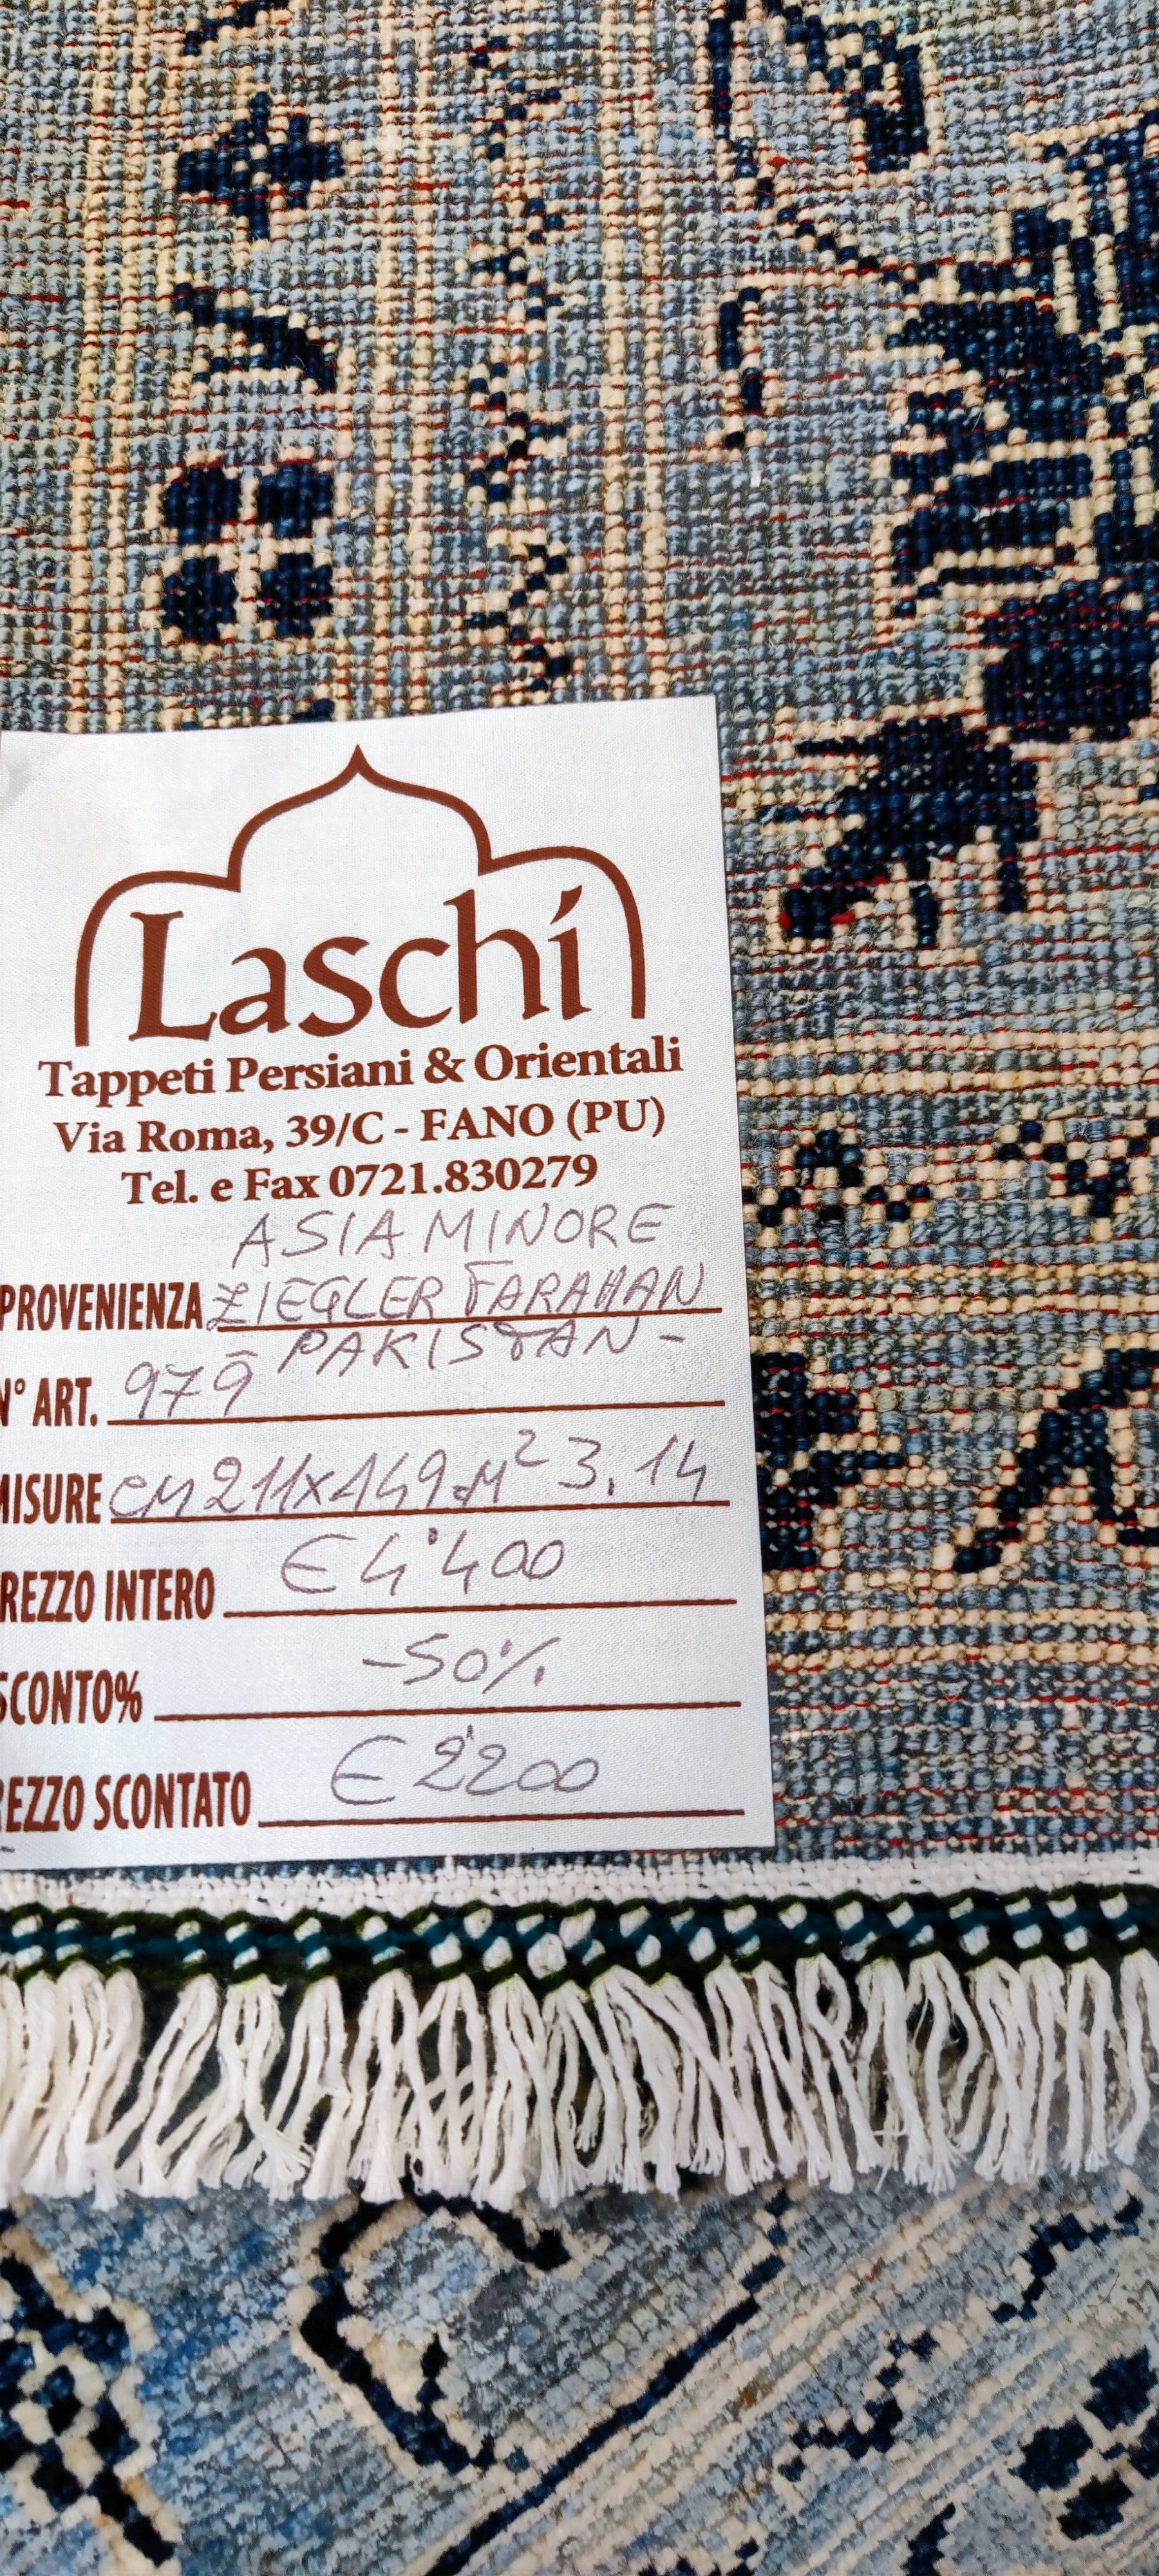 Laschi
Tappeti Persiani & Orientali
Via Roma, 39/C - FANO (PU)
Tel. e Fax 0721.830279
ASIA MINORE
PROVENIENZA ZIEGLER FARAHAN
PAKISTAN -
N° ART. 979
MISURE CM 211x149 M² 3.14
REZZO INTERO € 4'400
SCONTO% -50%
REZZO SCONTATO € 2'200